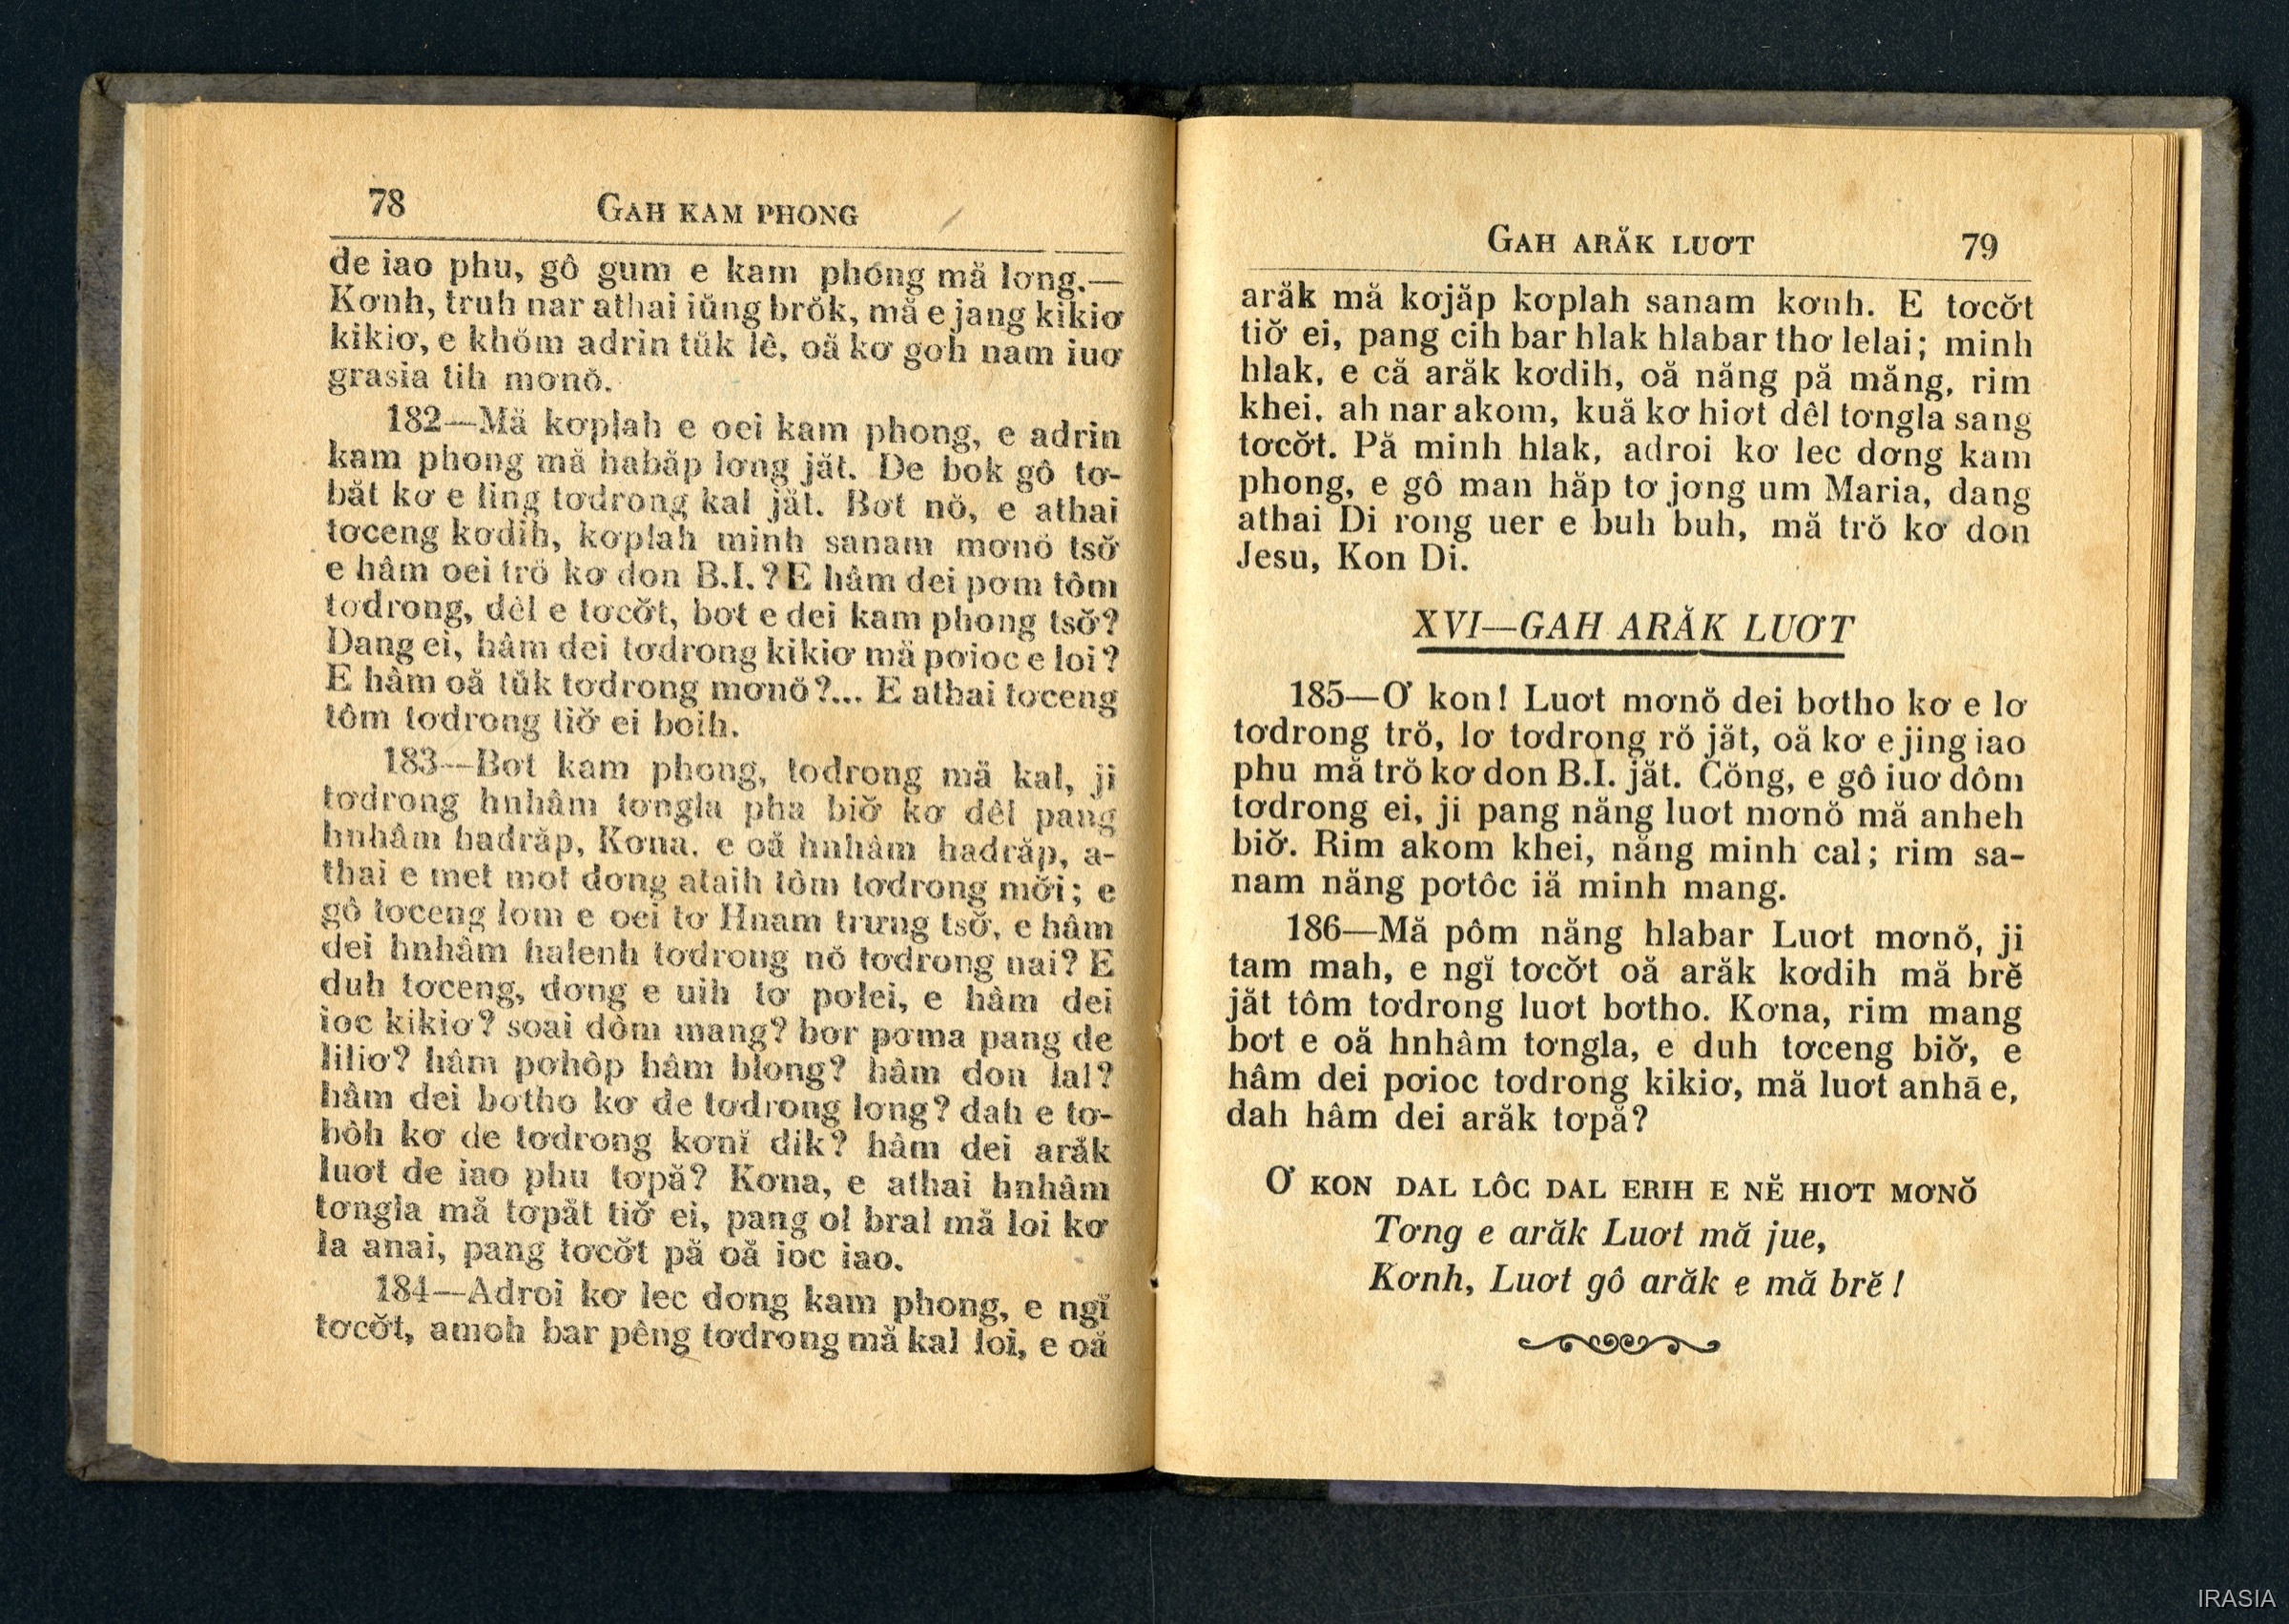 78 GAH KAM PHONG
de iao phu, gô gum e kam phong mă lơng.—
Kơnh, truh nar athai iŭng brŏk, mă e jang kikiơ
kikiơ, e khŏm adrin tŭk lê, oă kơ goh nam iuơ
grasia tih mơnŏ.
182—Mă kơplah e oei kam phong, e adrin
kam phong mă habăp lơng jăt. De bok gô tơ-
băt kơ e ling tơdrong kal jăt. Bơt nŏ, e athai
tơceng kơdih, kơplah minh sanam mơnŏ tsơ̆
e hâm oei trŏ kơ don B.I.? E hâm dei pơm tôm
tơdrong, dêl e tơcơ̆t, bơt e dei kam phong tsơ̆?
Dang ei, hâm dei tơdrong kikiơ mă pơioc e loi?
E hâm oă tŭk tơdrong mơnŏ?... E athai tơceng
tôm tơdrong tiơ̆ ei boih.
183—Bơt kam phong, tơdrong mă kal, ji
tơdrong hnhâm tơngla pha biơ̆ kơ dêl pang
hnhâm hadrăp, Kơna, e oă hnhâm hadrăp, a-
thai e met mot dơng ataih tôm tơdrong mơ̆i; e
gô tơceng lơm e oei tơ Hnam trưng tsơ̆, e hâm
dei hnhâm halenh tơdrong nŏ tơdrong nai? E
duh tơceng, dơng e uih tơ pơlei, e hâm dei
ioc kikiơ? soai dôm mang? bơr pơma pang de
liliơ? hâm pơhôp hâm blong? hâm don lal?
hâm dei bơtho kơ de tơdrong lơng? dah e tơ-
bôh kơ de tơdrong kơnĭ dik? hâm dei arăk
luơt de iao phu tơpă? Kơna, e athai hnhâm
tơngla mă tơpăt tiơ̆ ei, pang ol bral mă loi kơ
la anai, pang tơcơ̆t pă oă ioc iao.
184—Adroi kơ lec dơng kam phong, e ngĭ
tơcơ̆t, amoh bar pêng tơdrong mă kal loi, e oă
GAH ARĂK LUƠT 79
arăk mă kơjăp kơplah sanam kơnh. E tơcơ̆t
tiơ̆ ei, pang cih bar hlak hlabar thơ lelai; minh
hlak, e că arăk kơdih, oă năng pă măng, rim
khei, ah nar akom, kuă kơ hiơt dêl tơngla sang
tơcơ̆t. Pă minh hlak, adroi kơ lec dơng kam
phong, e gô man hăp tơ jơng um Maria, dang
athai Di rong uer e buh buh, mă trŏ kơ don
Jesu, Kon Di.
XVI—GAH ARĂK LUƠT
185—Ơ kon! Luơt mơnŏ dei bơtho kơ e lơ
tơdrong trŏ, lơ tơdrong rŏ jăt, oă kơ e jing iao
phu mă trŏ kơ don B.I. jăt. Cŏng, e gô iuơ dôm
tơdrong ei, ji pang năng luơt mơnŏ mă anheh
biơ̆. Rim akom khei, năng minh cal; rim sa-
nam năng pơtôc iă minh mang.
186—Mă pôm năng hlabar Luơt mơnŏ, ji
tam mah, e ngĭ tơcơ̆t oă arăk kơdih mă brĕ
jăt tôm tơdrong luơt bơtho. Kơna, rim mang
bơt e oă hnhâm tơngla, e duh tơceng biơ̆, e
hâm dei pơioc tơdrong kikiơ, mă luơt anhă e,
dah hâm dei arăk tơpă?
Ơ KON DAL LÔC DAL ERIH E NĔ HIƠT MƠNŎ
Tơng e arăk Luơt mă jue,
Kơnh, Luơt gô arăk e mă brĕ!
IRASIA